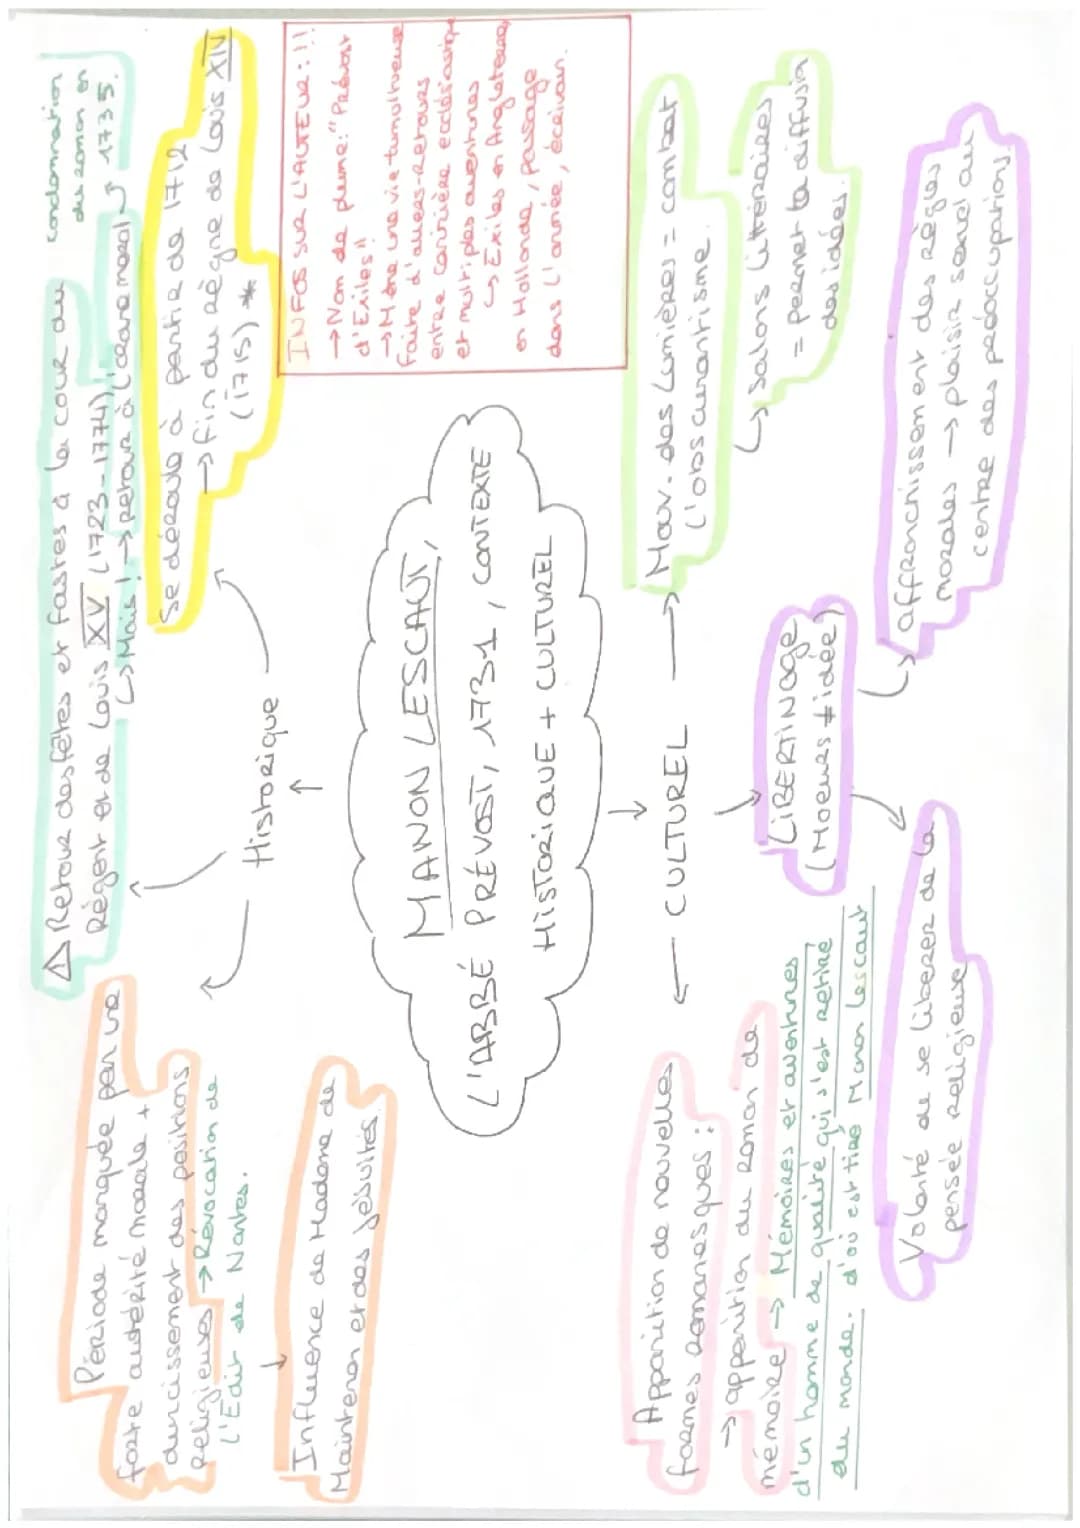 MANON LESCAUT,
L'ABBÉ PRÉVOST, 1731, CONTEXTE
HISTORIQUE + CULTUREL
Historique
Période marquée par une
forte austérité morale +
durcissement des positions
religieuses → Révocation de
l'Édit de Nantes.
Influence de Madame de
Maintenon et des jésuites
⚠ Retour des fêtes et fastes à la cour du
Régent et de Louis XV (1723-1774)
↳ Mais ! → retour à l'ordre moral ↪
condamnation
du roman en
1735.
Se déroule à partir de 1712
→ fin du règne de Louis XIV
(1715) *
INFOS SUR L'AUTEUR : !!
→ Nom de plume: "Prévost
d'Exiles"!
→ Mène une vie tumultueuse
faite d'allers-retours
entre carrière ecclésiastique
et multiples aventures
↳ Exiles en Angleterre
en Hollande, passage
dans l'armée, écrivain.
CULTUREL
Apparition de nouvelles
formes romanesques :
→ apparition du roman de
mémoire → Mémoires et aventures
d'un homme de qualité qui s'est retiré
du monde. d'où est tiré Manon Lescaut
LiBERTiNage
(Moeurs ≠ idée)
Volonté de se liberer de la
pensée religieuse
↳ affranchissement des règles
morales → plaisir seul au
centre des préoccupations.
→ Mouv. des Lumières = combat
l'obscurantisme.
↳ Salons littéraires
= permet la diffusion
des idées.